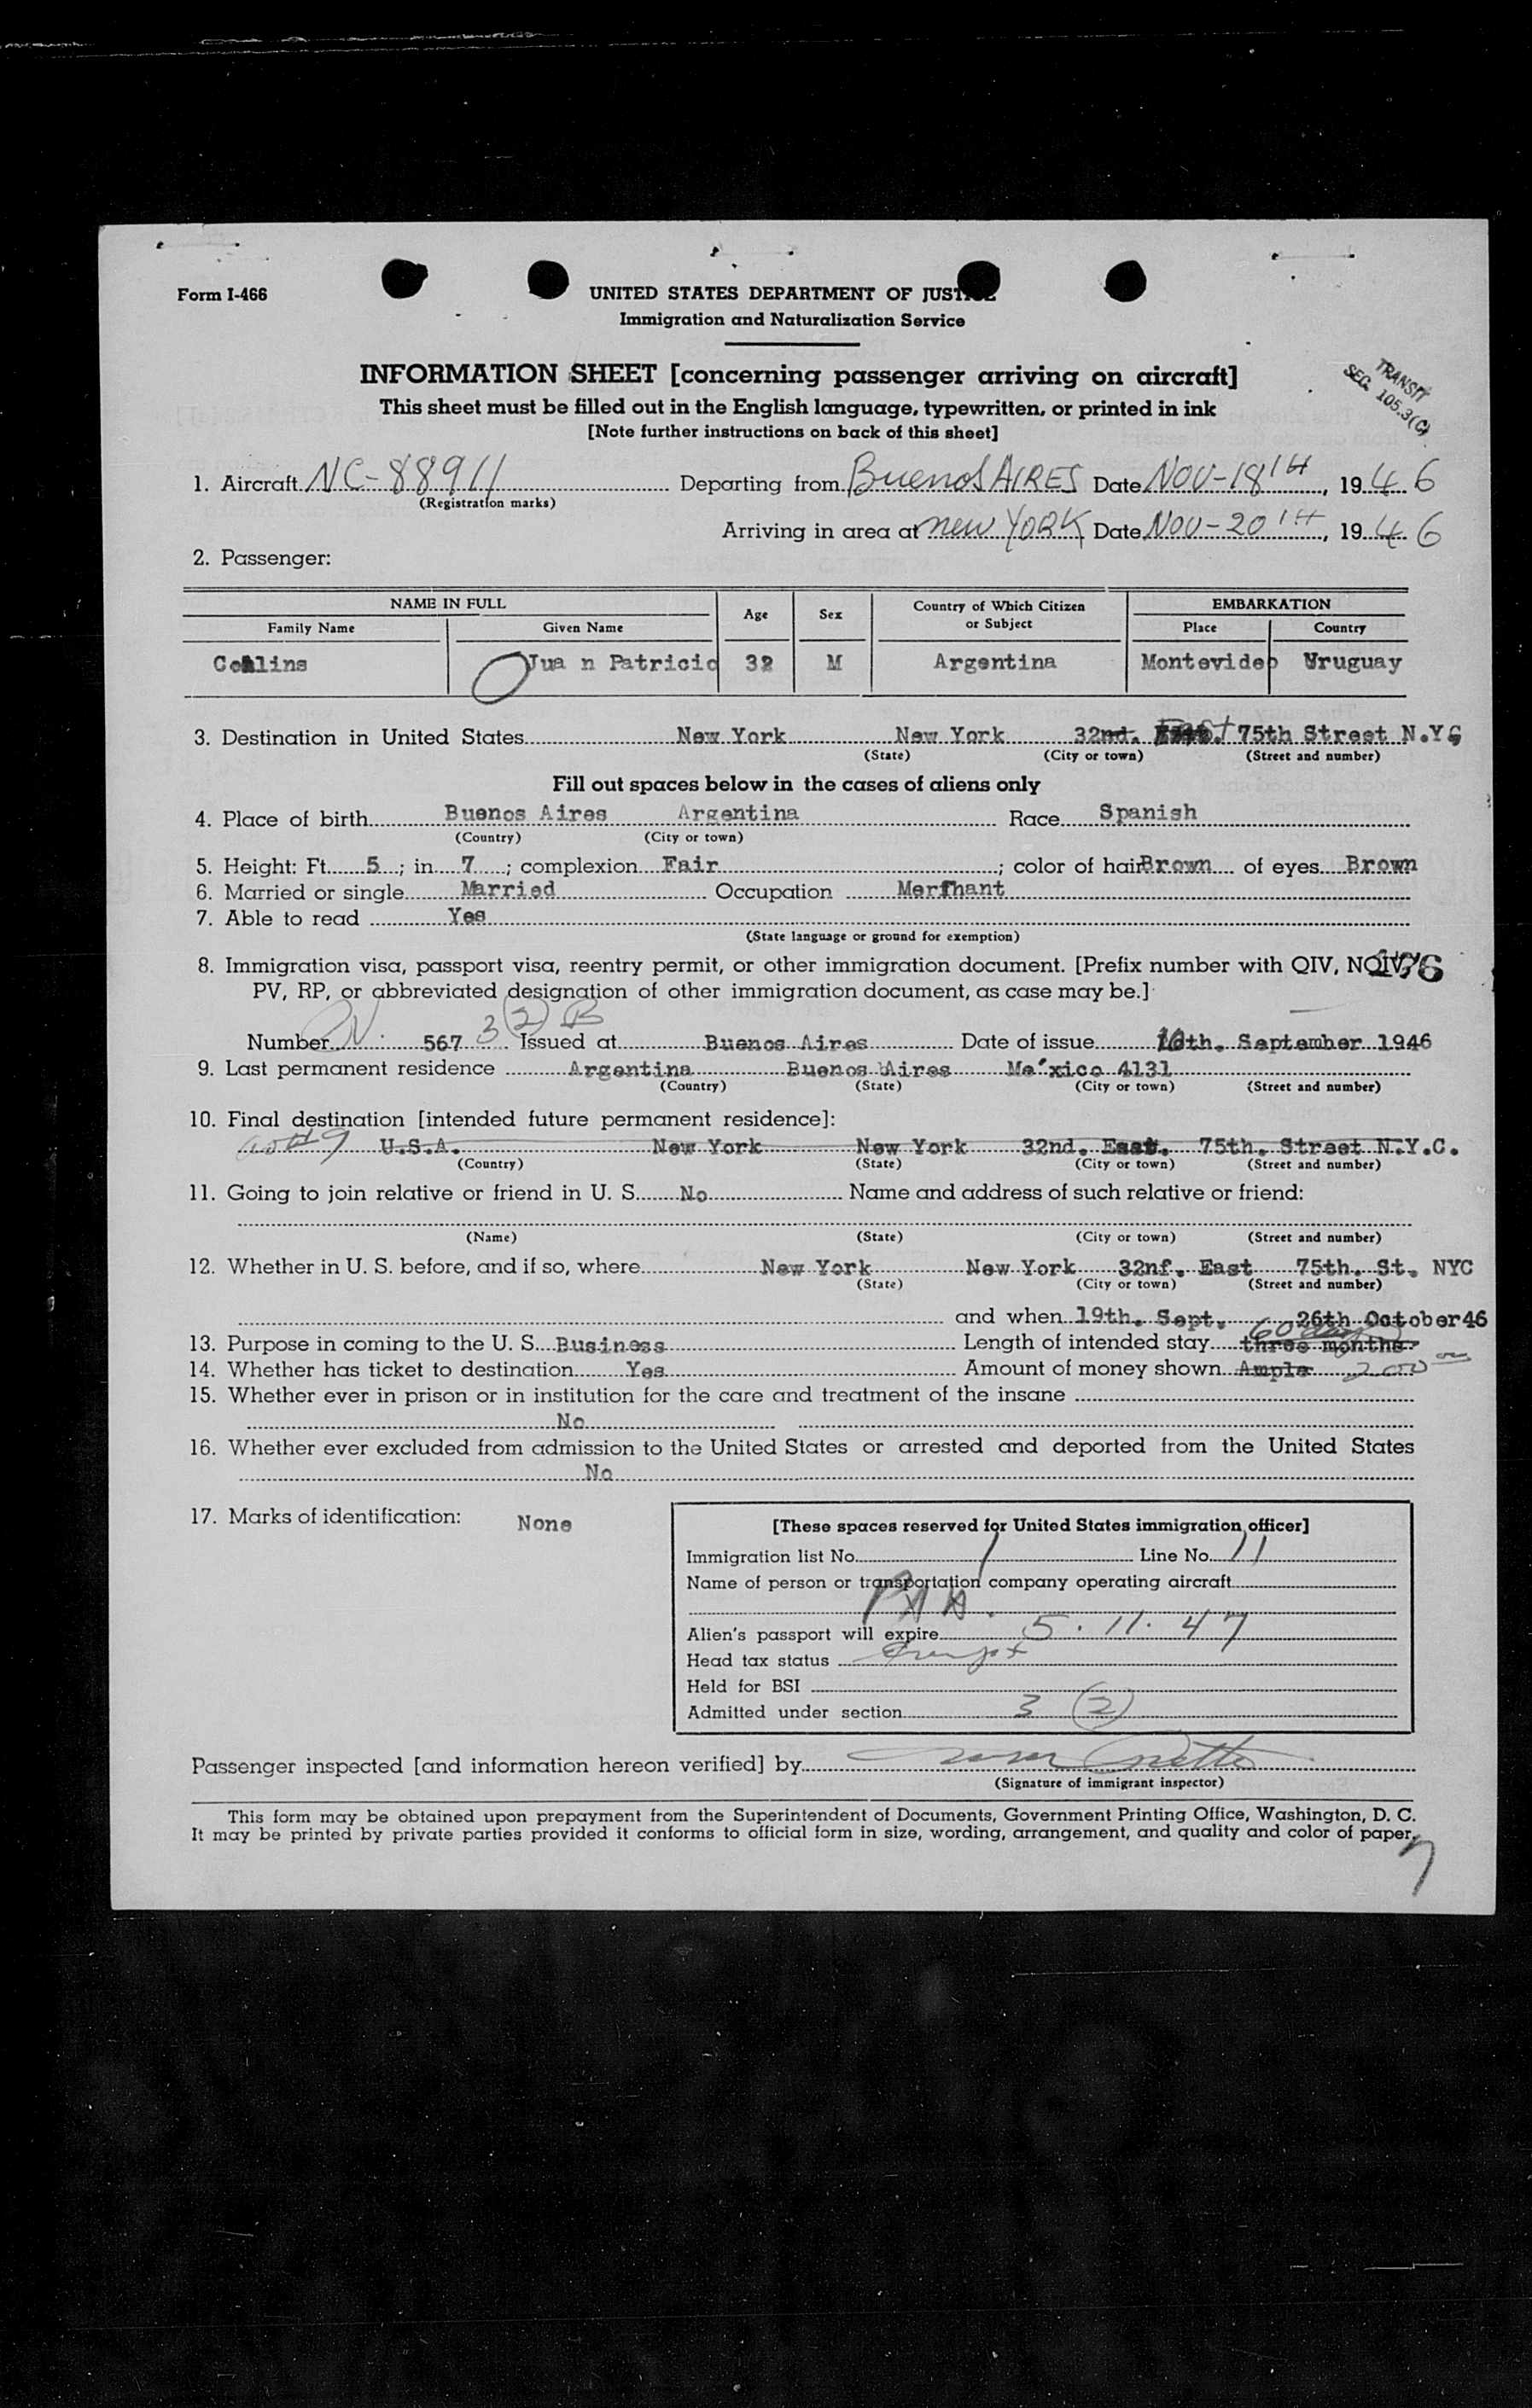 Form I-466
UNITED STATES DEPARTMENT OF JUSTICE
Immigration and Naturalization Service
INFORMATION SHEET [concerning passenger arriving on aircraft]
TRANSIT
SEC. 105.3(C)
This sheet must be filled out in the English language, typewritten, or printed in ink
[Note further instructions on back of this sheet]
1. Aircraft NC-88911 Departing from Buenos AIRES Date Nov-18TH, 1946
(Registration marks)
Arriving in area at new YORK Date Nov-20TH, 1946
2. Passenger:
NAME IN FULL Age Sex Country of Which Citizen or Subject EMBARKATION
Family Name Given Name Place Country
Collins Jua n Patricio 32 M Argentina Montevideo Uruguay
3. Destination in United States New York New York 32nd. East 75th Street N.Y.C
(State) (City or town) (Street and number)
Fill out spaces below in the cases of aliens only
4. Place of birth Buenos Aires Argentina Race Spanish
(Country) (City or town)
5. Height: Ft. 5; in. 7; complexion Fair; color of hair Brown of eyes Brown
6. Married or single Married Occupation Merchant
7. Able to read Yes
(State language or ground for exemption)
8. Immigration visa, passport visa, reentry permit, or other immigration document. [Prefix number with QIV, NQIV,
PV, RP, or abbreviated designation of other immigration document, as case may be.]
3(2) B
Number 567 Issued at Buenos Aires Date of issue 10th. September 1946
9. Last permanent residence Argentina Buenos Aires Me´xico 4131
(Country) (State) (City or town) (Street and number)
10. Final destination [intended future permanent residence]:
U.S.A. New York New York 32nd. East. 75th. Street N.Y.C.
(Country) (State) (City or town) (Street and number)
11. Going to join relative or friend in U. S. No Name and address of such relative or friend:
(Name) (State) (City or town) (Street and number)
12. Whether in U. S. before, and if so, where New York New York 32nf. East 75th. St. NYC
(State) (City or town) (Street and number)
and when 19th. Sept. 26th October 46
60 days
13. Purpose in coming to the U. S. Business Length of intended stay three months
14. Whether has ticket to destination Yes Amount of money shown Ample 2000
15. Whether ever in prison or in institution for the care and treatment of the insane
No
16. Whether ever excluded from admission to the United States or arrested and deported from the United States
No
17. Marks of identification: None
[These spaces reserved for United States immigration officer]
Immigration list No. 1 Line No. 11
Name of person or transportation company operating aircraft
PAA.
Alien's passport will expire 5.11.47
Head tax status Exempt
Held for BSI
Admitted under section 3 (2)
Passenger inspected [and information hereon verified] by
(Signature of immigrant inspector)
This form may be obtained upon prepayment from the Superintendent of Documents, Government Printing Office, Washington, D. C.
It may be printed by private parties provided it conforms to official form in size, wording, arrangement, and quality and color of paper.
7